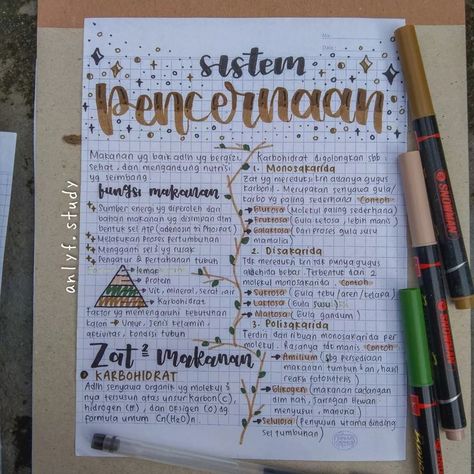 No:
sistem
Pencernaan
Makanan yg baik adlh yg bergizi,
sehat, dan mengandung nutrisi
yg seimbang.
fungsi makanan
Sumber energi yg diperoleh dari
bahan makanan yg disimpan dlm
bentuk sel ATP (adenosin tri Phospat)
Melakukan Proses Pertumbuhan
Mengganti sel² yg rusak
Pengatur & Pertahanan tubuh
lemak
Protein
Vit, mineral, serat, air
Karbohidrat
factor yg memengaruhi kebutuhan
kalori → Umur, Jenis kelamin,
aktivitas, kondisi tubuh
Zat² Makanan
KARBOHIDRAT
Adlh senyawa organik yg molekul²
nya tersusun atas unsur Karbon (C),
hidrogen (H), dan oksigen (O) dg
formula umum Cn(H₂O)n.
Karbohidrat digolongkan sbb:
1. Monosakarida
Zat yg mereduksi krn adanya gugus
Karbonil. Merupakan senyawa gula/
karbo yg paling sederhana. Contoh:
Glukosa (Molekul paling sederhana)
Fruktosa (Gula tetosa, lebih manis)
Galaktosa (Dari proses gula susu
mamalia)
2. Disakarida
Tdk mereduksi krn tdk punya gugus
aldehida bebas. Terbentuk dari 2
molekul monosakarida. Contoh:
Sukrosa (Gula tebu/aren/kelapa)
Laktosa (Gula susu)
Maltosa (Gula gandum)
3. Polisakarida
Terdiri dari ribuan monosakarida per
molekul. Rasanya tdk manis. Contoh:
Amilum (sbg persediaan
makanan tumbuhan, hasil
reaksi fotosintesis)
Glikogen (makanan cadangan
dlm hati, Jaringan Hewan
menyusui, manusia)
Selulosa (Penyusun utama dinding
sel tumbuhan)
anlyf.study
SNOWMAN
SNOWMAN